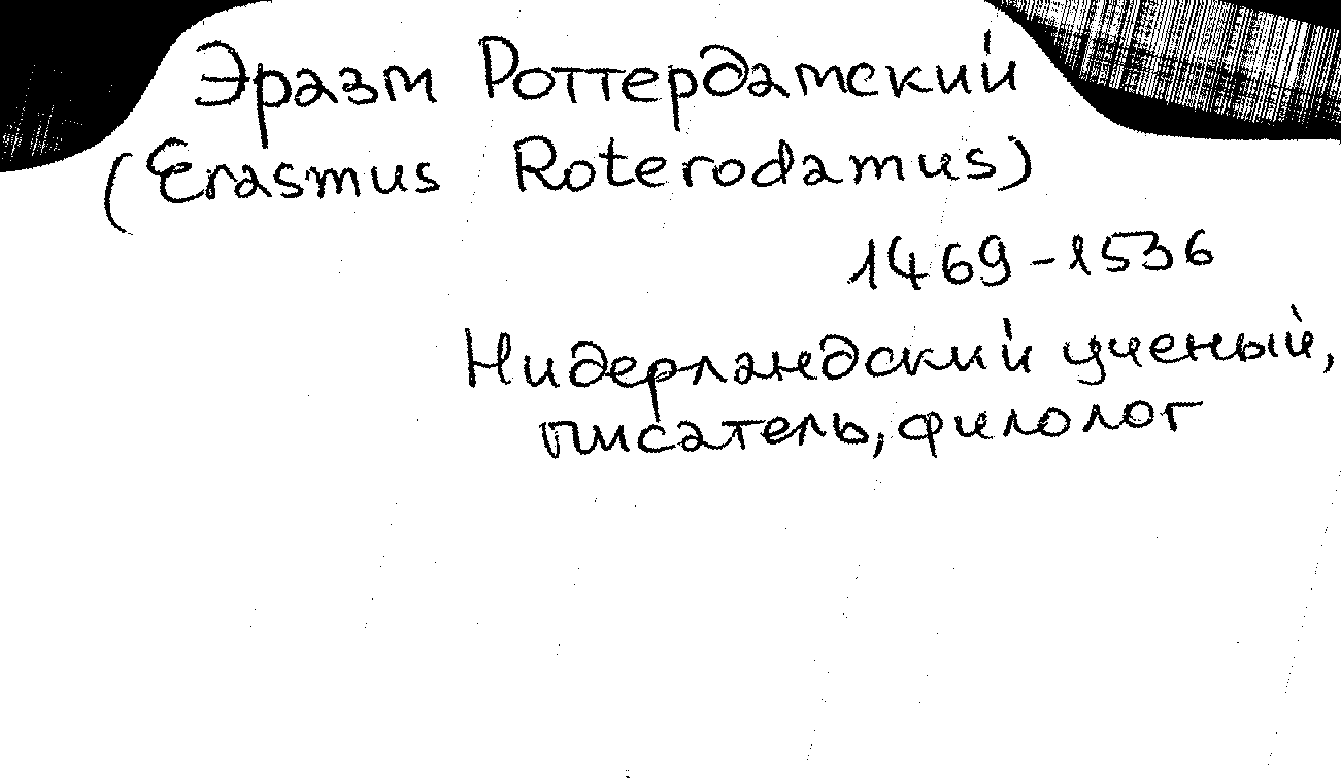 Эразм Роттердамский
(Erasmus Roterodamus)
1469-1536
Нидерландский ученый,
писатель, филолог